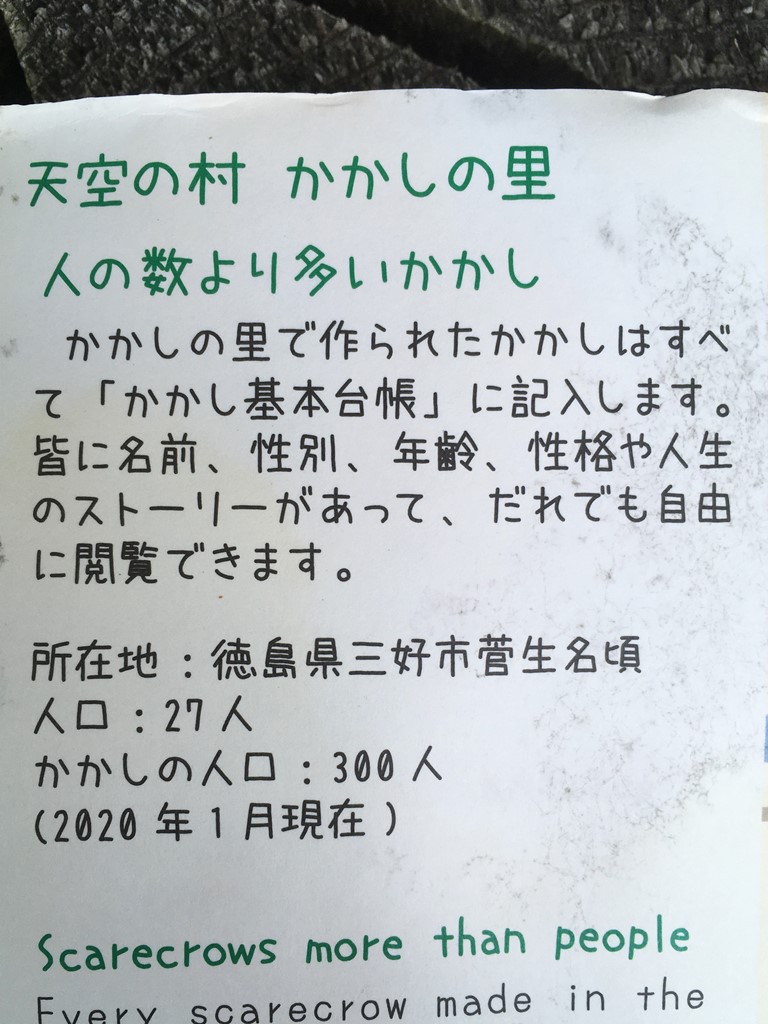 天空の村 かかしの里
人の数より多いかかし
かかしの里で作られたかかしはすべ
て「かかし基本台帳」に記入します。
皆に名前、性別、年齢、性格や人生
のストーリーがあって、だれでも自由
に閲覧できます。
所在地：徳島県三好市菅生名頃
人口：27人
かかしの人口：300人
(2020年1月現在)
Scarecrows more than people
Every scarecrow made in the